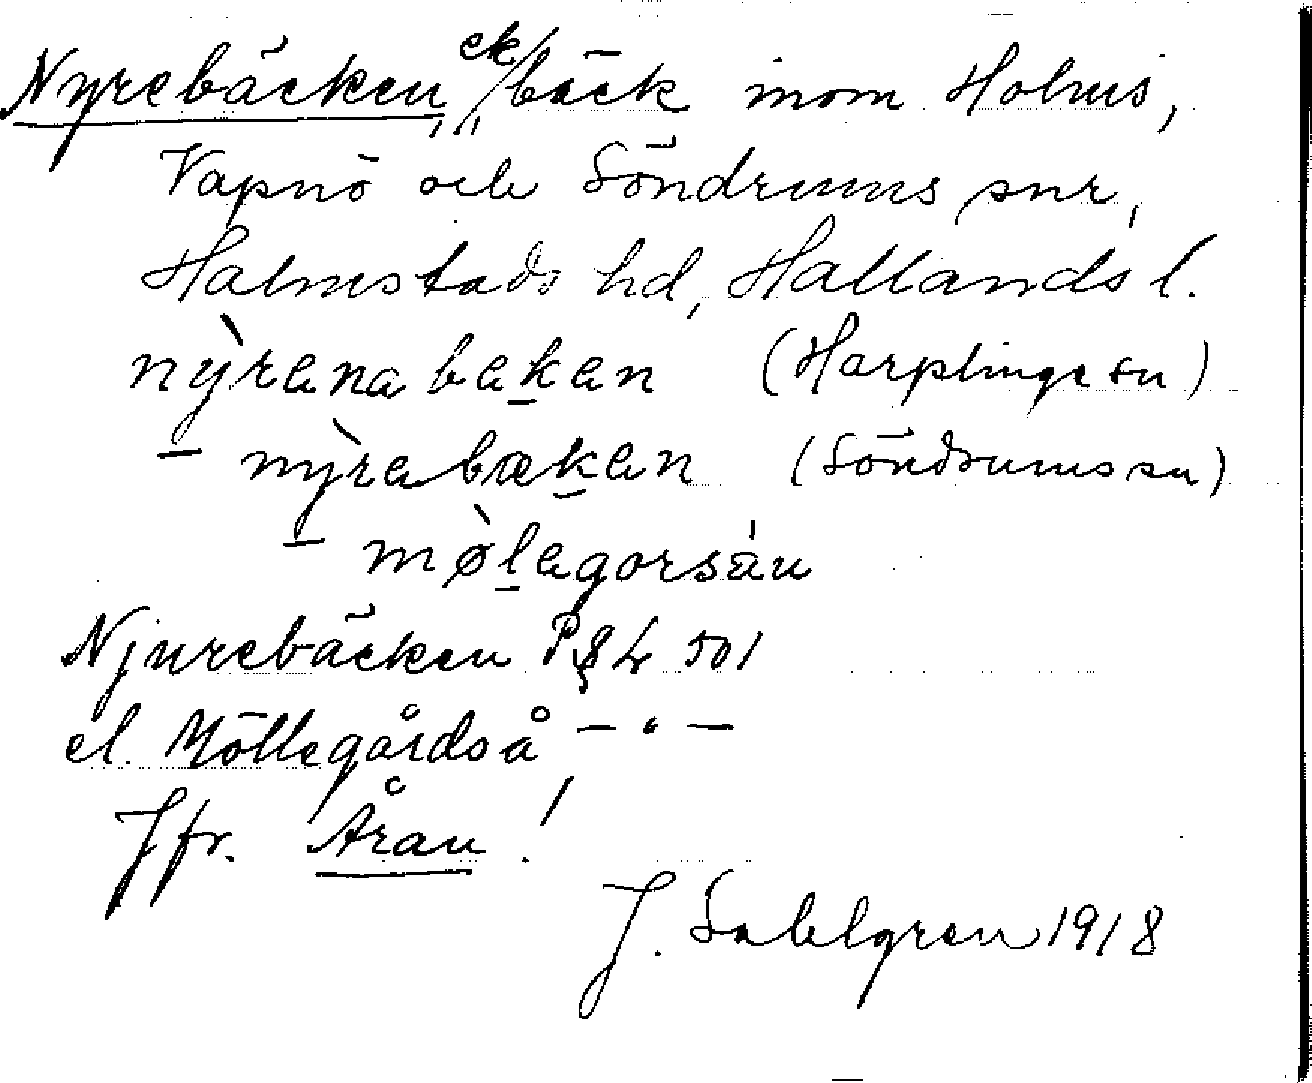 Nyrebäcken, ek/bäck inom Holms,
Vapnö och Söndrums snr,
Halmstads hd, Hallands l.
nỳrenabekan (Harplinge sn)
– nỳrabækan (Söndrums sn)
– mø̀lagorsán
Njurebäcken P 84 501
el. Möllegårdså – " –
Jfr. Åran!
J. Sahlgren 1918